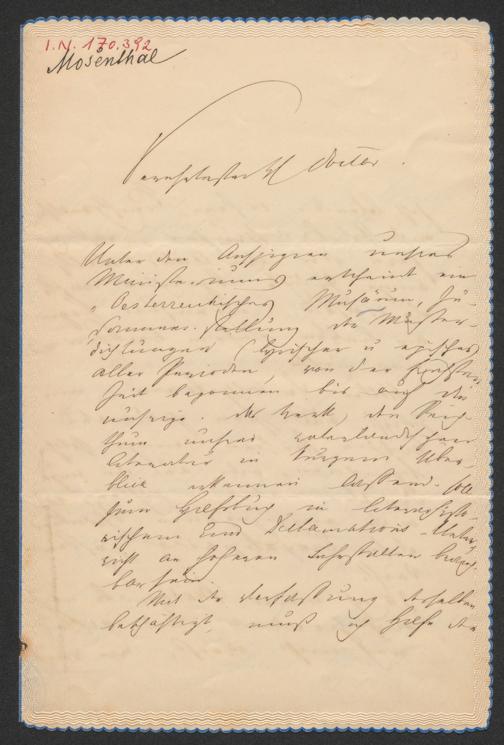 I.N. 170.392
Mosenthal
Verehrtester H Doctor.
Unter den Auspizien unseres
Ministeriums erscheint ein
"Oesterreichisches Musäum, Zu-
sammenstellung der Muster-
dichtungen (lyrischer u epischer)
aller Perioden, von der
Zeit begonnen bis auf die
unsrige. Das Werk, den Reich-
thum unsrer vaterländischen
Literatur in kurzem Über-
blick erkennen lassend, soll
zum Hilfsbuch in literarhisto-
rischem und Declamations-Unter-
richt an höheren Lehrstalten brauch-
bar sein.
Mit der Verfassung desselben
beschäftigt, muß ich Hilfe der